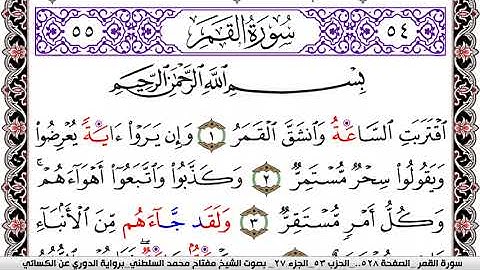 ٥٥ سُورَةُ القَمَرِ ٥٤
بِسْمِ اللَّهِ الرَّحْمَٰنِ الرَّحِيمِ
اقْتَرَبَتِ السَّاعَةُ وَانْشَقَّ الْقَمَرُ ١ وَإِن يَرَوْا ءَايَةً يُعْرِضُوا
وَيَقُولُوا سِحْرٌ مُّسْتَمِرٌّ ٢ وَكَذَّبُوا وَاتَّبَعُوا أَهْوَاءَهُمْ
وَكُلُّ أَمْرٍ مُّسْتَقِرٌّ ٣ وَلَقَدْ جَّاءَهُم مِّنَ الْأَنْبَاءِ
سورة القمر _ الصفحة ٥٢٨_ الحزب ٥٣_ الجزء ٢٧ _ بصوت الشيخ مفتاح محمد السلطني _ برواية الدوري عن الكسائي